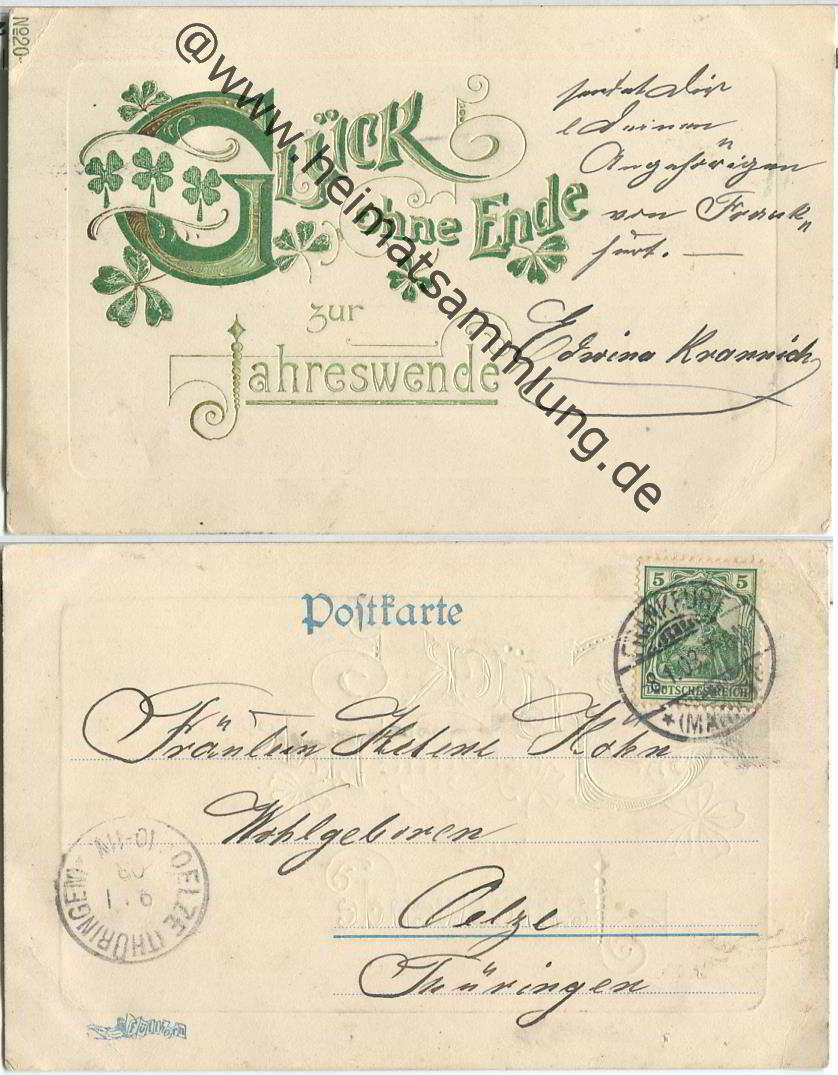 No 20
@www.heimatsammlung.de
Glück
ohne Ende
zur
Jahreswende
sendet Dir
Deinen
Angehörigen
von Frank
furt. —
Edwina Krannich
Postkarte
5 5
DEUTSCHES REICH
FRANKFURT
* (MAIN)
Fräulein Helene Höhn
Wohlgeboren
Oelze
Thüringen
OELZE (THÜRINGEN)
9 1
03
10-11V